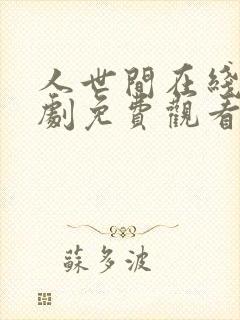 人世間在綫
劇免費觀看
蘇多波